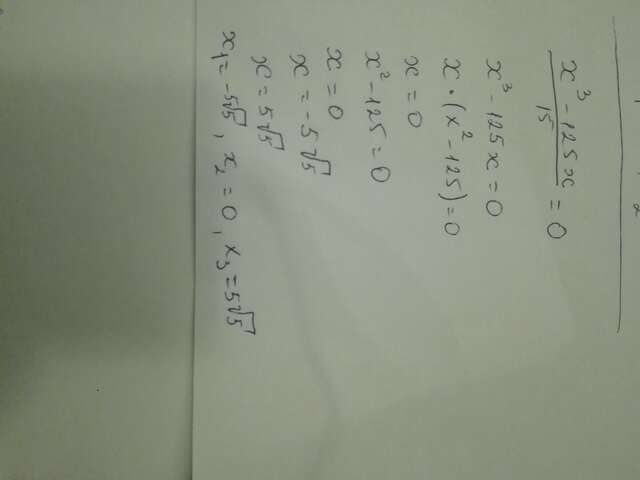 x³ - 125x / 15 = 0
x³ - 125x = 0
x · (x² - 125) = 0
x = 0
x² - 125 = 0
x = 0
x = -5√5
x = 5√5
x₁ = -5√5, x₂ = 0, x₃ = 5√5